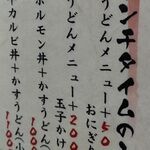 ンチタイムの
うどんメニュー＋50
おにぎ
うどんメニュー＋20
玉子かけ
ホルモン丼＋かすうどん
1000
カルビ丼＋かすうどん（小
1100